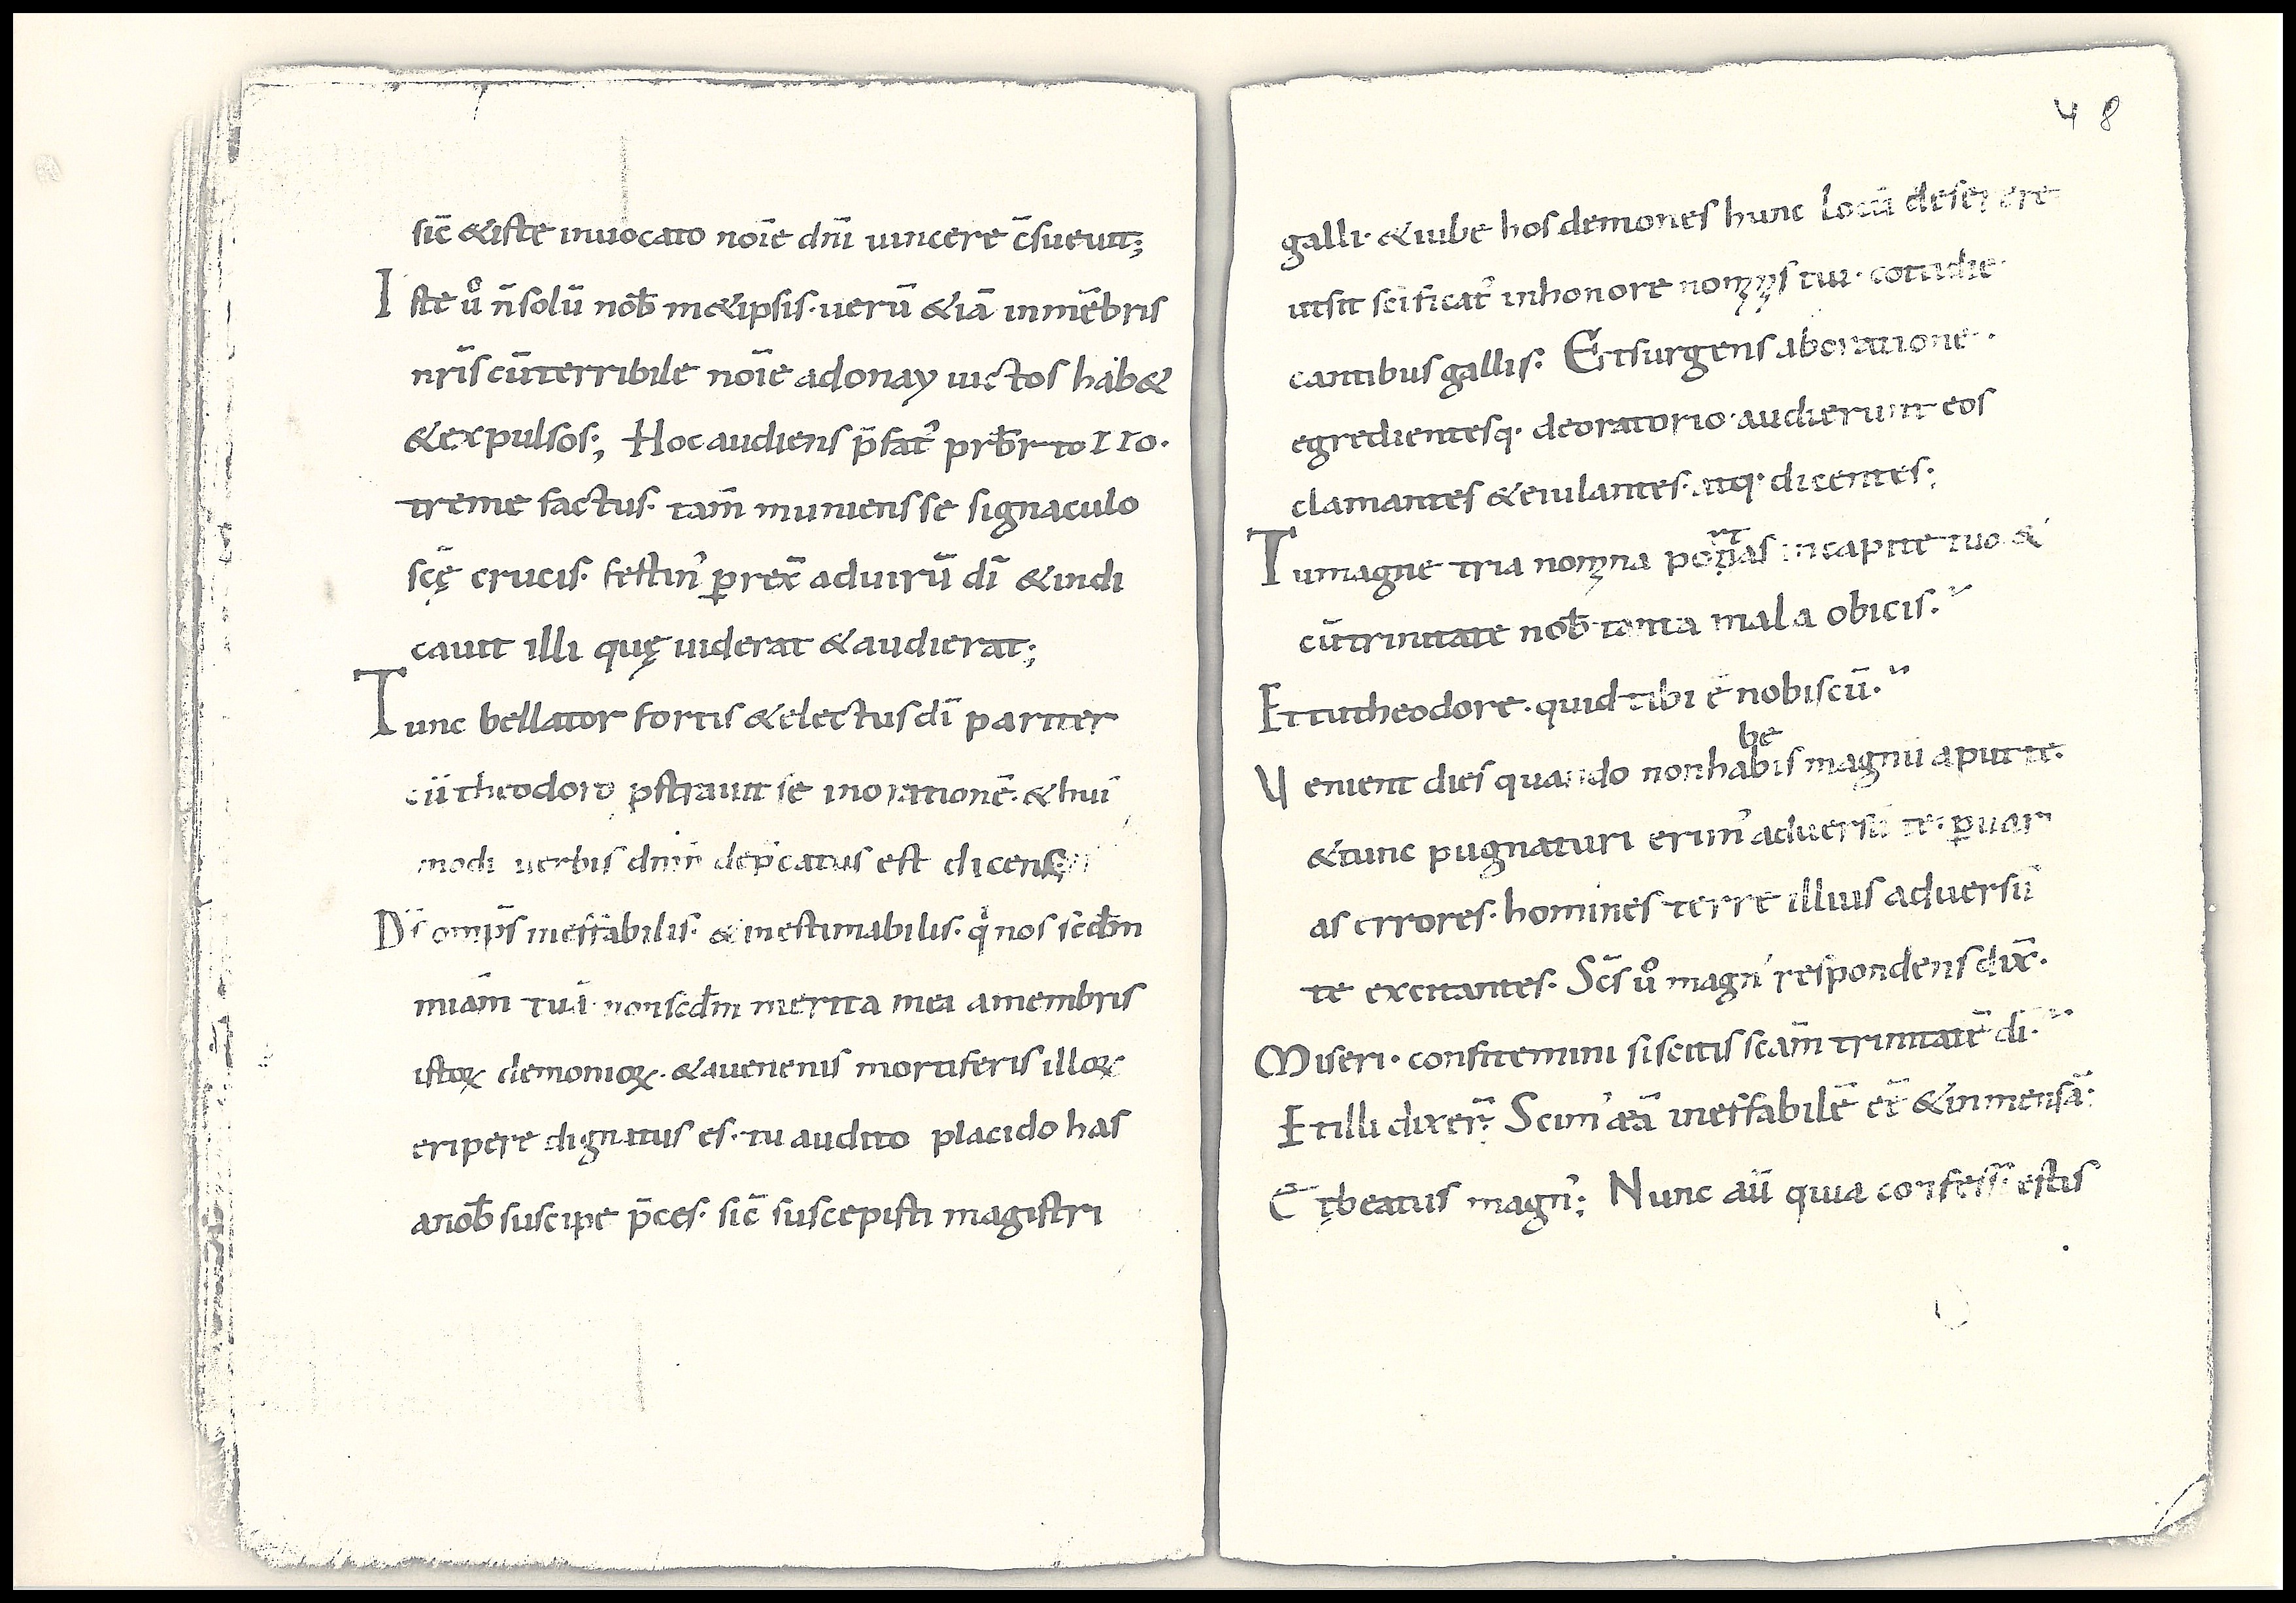 sic̄ & iste inuocato noīe dn̄i uincere c̄sueuit;
Iste ů n̄ solū nob̄ m&ipsis· uerū &iā in mēbris
nr̄is cū terribile noīe adonay uictos hab&
& expulsos; Hoc audiens p̄fat᾽ pr̄br to 110·
treme factus· tam̄ muniens se signaculo
scę̄ crucis· festin᾽ ꝑrex̄ ad uirū dī & indi
cauit illi quę uiderat & audierat;
Tunc bellator fortis & electus dī pariter
cū theodoro pstrauit se in orationē· & hui᾽
modi uerbis dn̄m dep̄catus est dicens;
Ds̄ omps̄ ineffabilis· & inestimabilis· q̇ nos scd̄m
miam̄ tuā· non scd̄m merita mei a membris
istoꝝ demonioꝝ· & a uenenis mortiferis illoꝝ
eripere dignatus es· tu audito placido has
a nob̄ suscipe p̄ces· sic̄ suscepisti magistri
48
galli· & iube hos demones hunc locū deserere
ut sit scīficat᾽ in honore nominis tui· cottidie·
cantibus gallis· Et surgens ab oratione·
egredientesq· de oratorio· audierunt eos
clamantes & eiulantes· atq· dicentes;
Tu magne tria nomina portas in capite tuo &
cū trinitate nob̄ tanta mala obicis·
Et tu theodore· quid tibi ē nobiscū·
be
Venient dies quando non habis magnū aput te·
& tunc pugnaturi erim᾽ aduersū te· ꝑ uari
as errores· homines terre illius aduersū
te excitantes· Scs̄ ů magn᾽ respondens dix̄·
Miseri· confitemini si scitis scam̄ trinitatē dī·
Et illi dixer̄· Scim᾽ eā ineffabilē eē & inmensā·
Et beatus magn᾽; Nunc aū quia confessi estis